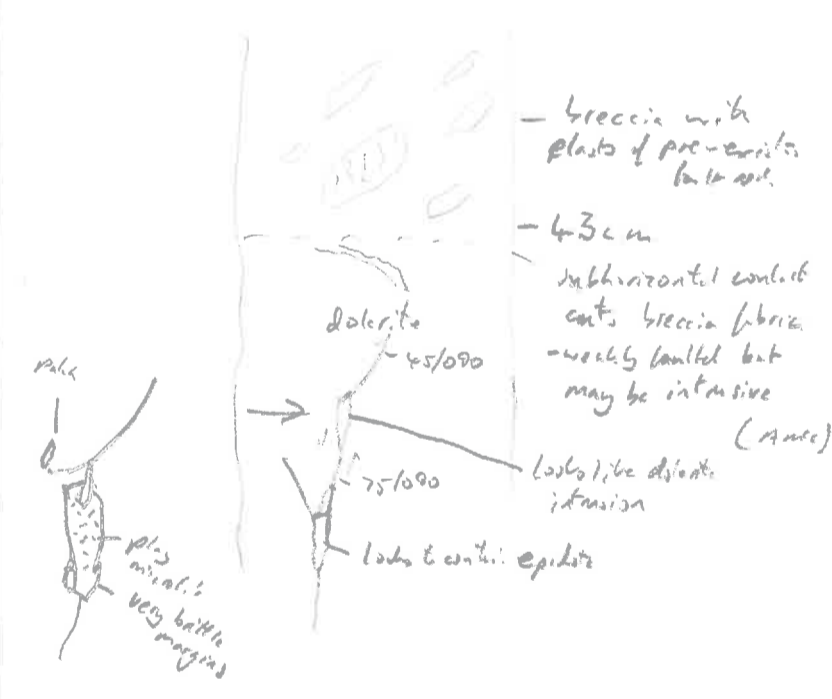 breccia with
clasts of pre-existing
fault rock
43cm
subhorizontal contact
cuts breccia fabric
-weakly faulted but
may be intrusive
dolerite
45/090
75/090
Looks like dolerite
intrusion
Looks to contain epidote
plag
microlite
very brittle
margins